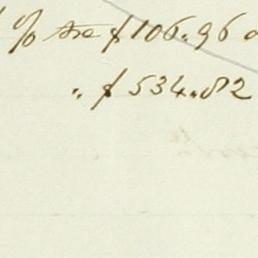 % are $106.96
" $534.82